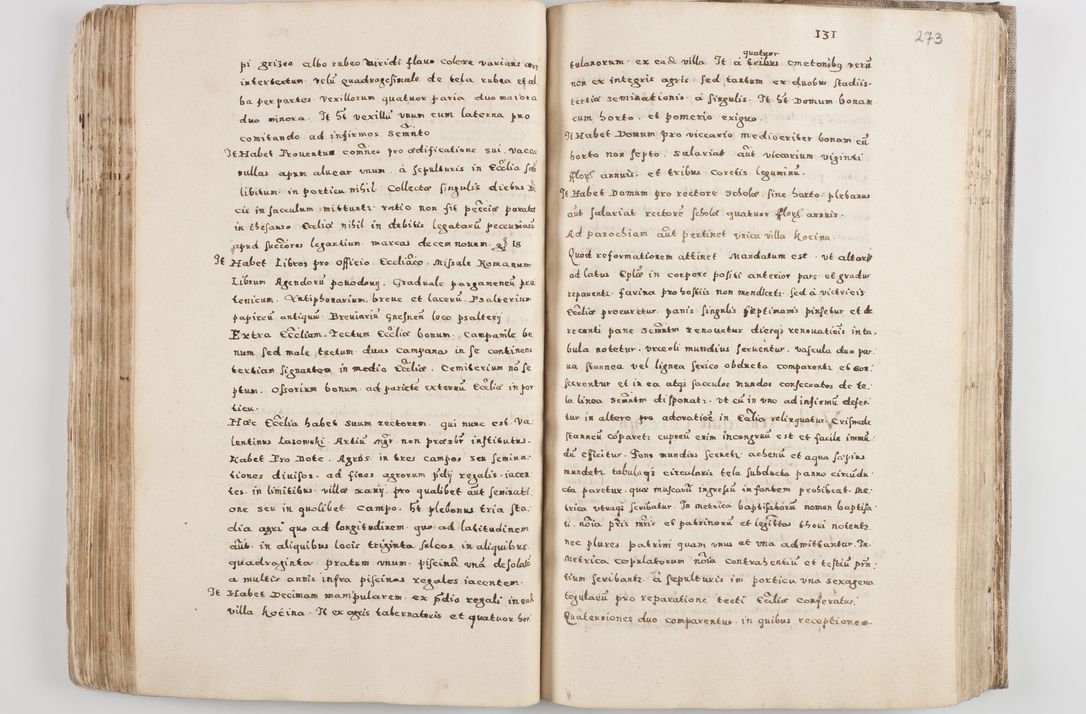 pi grizeo albo rubeo viridi flauo colore varians
intertextum. velū Quadragesimale de tela rubea et al
ba per partes. vexillorum quatuor paria duo maiora
duo minora. It ht vexillū vnum cum laterna pro
comitando ad infirmos
It Habet Prouentus pro ædificatione sui. vacca
nullas apum aluear vnum. à sepulturis in Ecclīa
libitum. in porticu nihil Collectæ singulis diebus
cis in sacculum mittunt. ratio non fit parata
in thesauro Ecclīæ nihil in debitis legatarū
apud legantium marcas decem nouem. 18
It Habet Libros pro officio Missale Romanum
Librum Agendorū Graduale pargameneū
tenicum. Antiphonarium. breue et lacerū. Psalterium
papireū antiquū. Breuiariū Gnesnen̄ loco psalterij
Extra Ecclīam. Tectum Ecclīæ bonum. Campanile bo
num sed male tectum duas campanas in se continens
tertiam signantem in medio Ecclīæ. Cemiterium nō se
ptum. Ossorium bonum. ad parietē exteriū Ecclīæ in por
ticu.
Hæc Ecclīa habet suum rectorem. qui nunc est Va-
lentinus Lasowski. Artiū non præsbr institutus.
Habet Pro Dote. Agros. in tres campos seu semina-
tiones diuisos. ad fines agrorum regalis. iacen
tes. in limitibus. villæ pro qualibet aūt seminati
one seu in quolibet campo. ht plebanus tria sta-
dia agri quo ad longitudinem. quo ad latitudinem
aūt. in aliquibus locis triginta sulcos. in aliquibus.
quadraginta pratum vnum. piscinā vnā
a multis annis infra piscinas regales iacentem.
It Habet Decimam manipularem. ex regali in
villa kocina. It ex agris tabernatoris et quatuor hor
131
273
quatuor
tulanorum. ex ead. villa. It à tribus cmetonibus verū
non ex integris agris. sed tantum ex duobus stadiis.
tertiæ seminationis à singulis. It ht Domum bonam
cum horto. et pomerio exiguo.
It Habet Domum pro viccario mediocriter bonam cū
horto non septo. Salariat aūt viccarium viginti
annuis. et tribus coretis leguminū.
It Habet Domum pro rectore scholæ. sine horto. plebanus
aūt salariat rectorē scholæ quatuor annuis.
Ad parochiam aūt pertinet vnica villa kocina.
Quod reformationem attinet Mandatum est. vt altaris
ad latus in corpore positi anterior pars. et gradus
reparent. farina pro hostiis non mendicet. sed à
Ecclīæ procuretur. panis singulis septimanis pinsetur et de
recenti pane renouetur in ta
bula notetur. vrceoli mundius seruentur. vascula duo par
ua stannea vel lignea serico obducta comparent. et con
secrentur et in ea sacculos mundos consecratos de te
la linea disponat. vt cū in vno ad infirmū defer
tur in altero pro adoratioē in Ecclīa relinquatur. Crismale
stanneū cōparet. cupreū enim incongruū est et facile immū
dū efficitur. Fons mundius seruet. aheniū et aqua sæpius
mundet. circularis tela subducta panno circūdu
cta paretur. quo muscarū ingressū in fontem prohibeat. me
trica scribatur. In metrica baptisatorū nomen baptisa
ti. et patrinorū et thori notent.
nec plures patrini quam vnus et vna admittantur. In
metrica copulatorum contrahentiū et testiū
tium scribant. à sepulturis in porticu vna sexagena
tegularū pro reparatione tecti Ecclīæ conferatur.
Quaterniones duo comparentur. in quibus receptiones